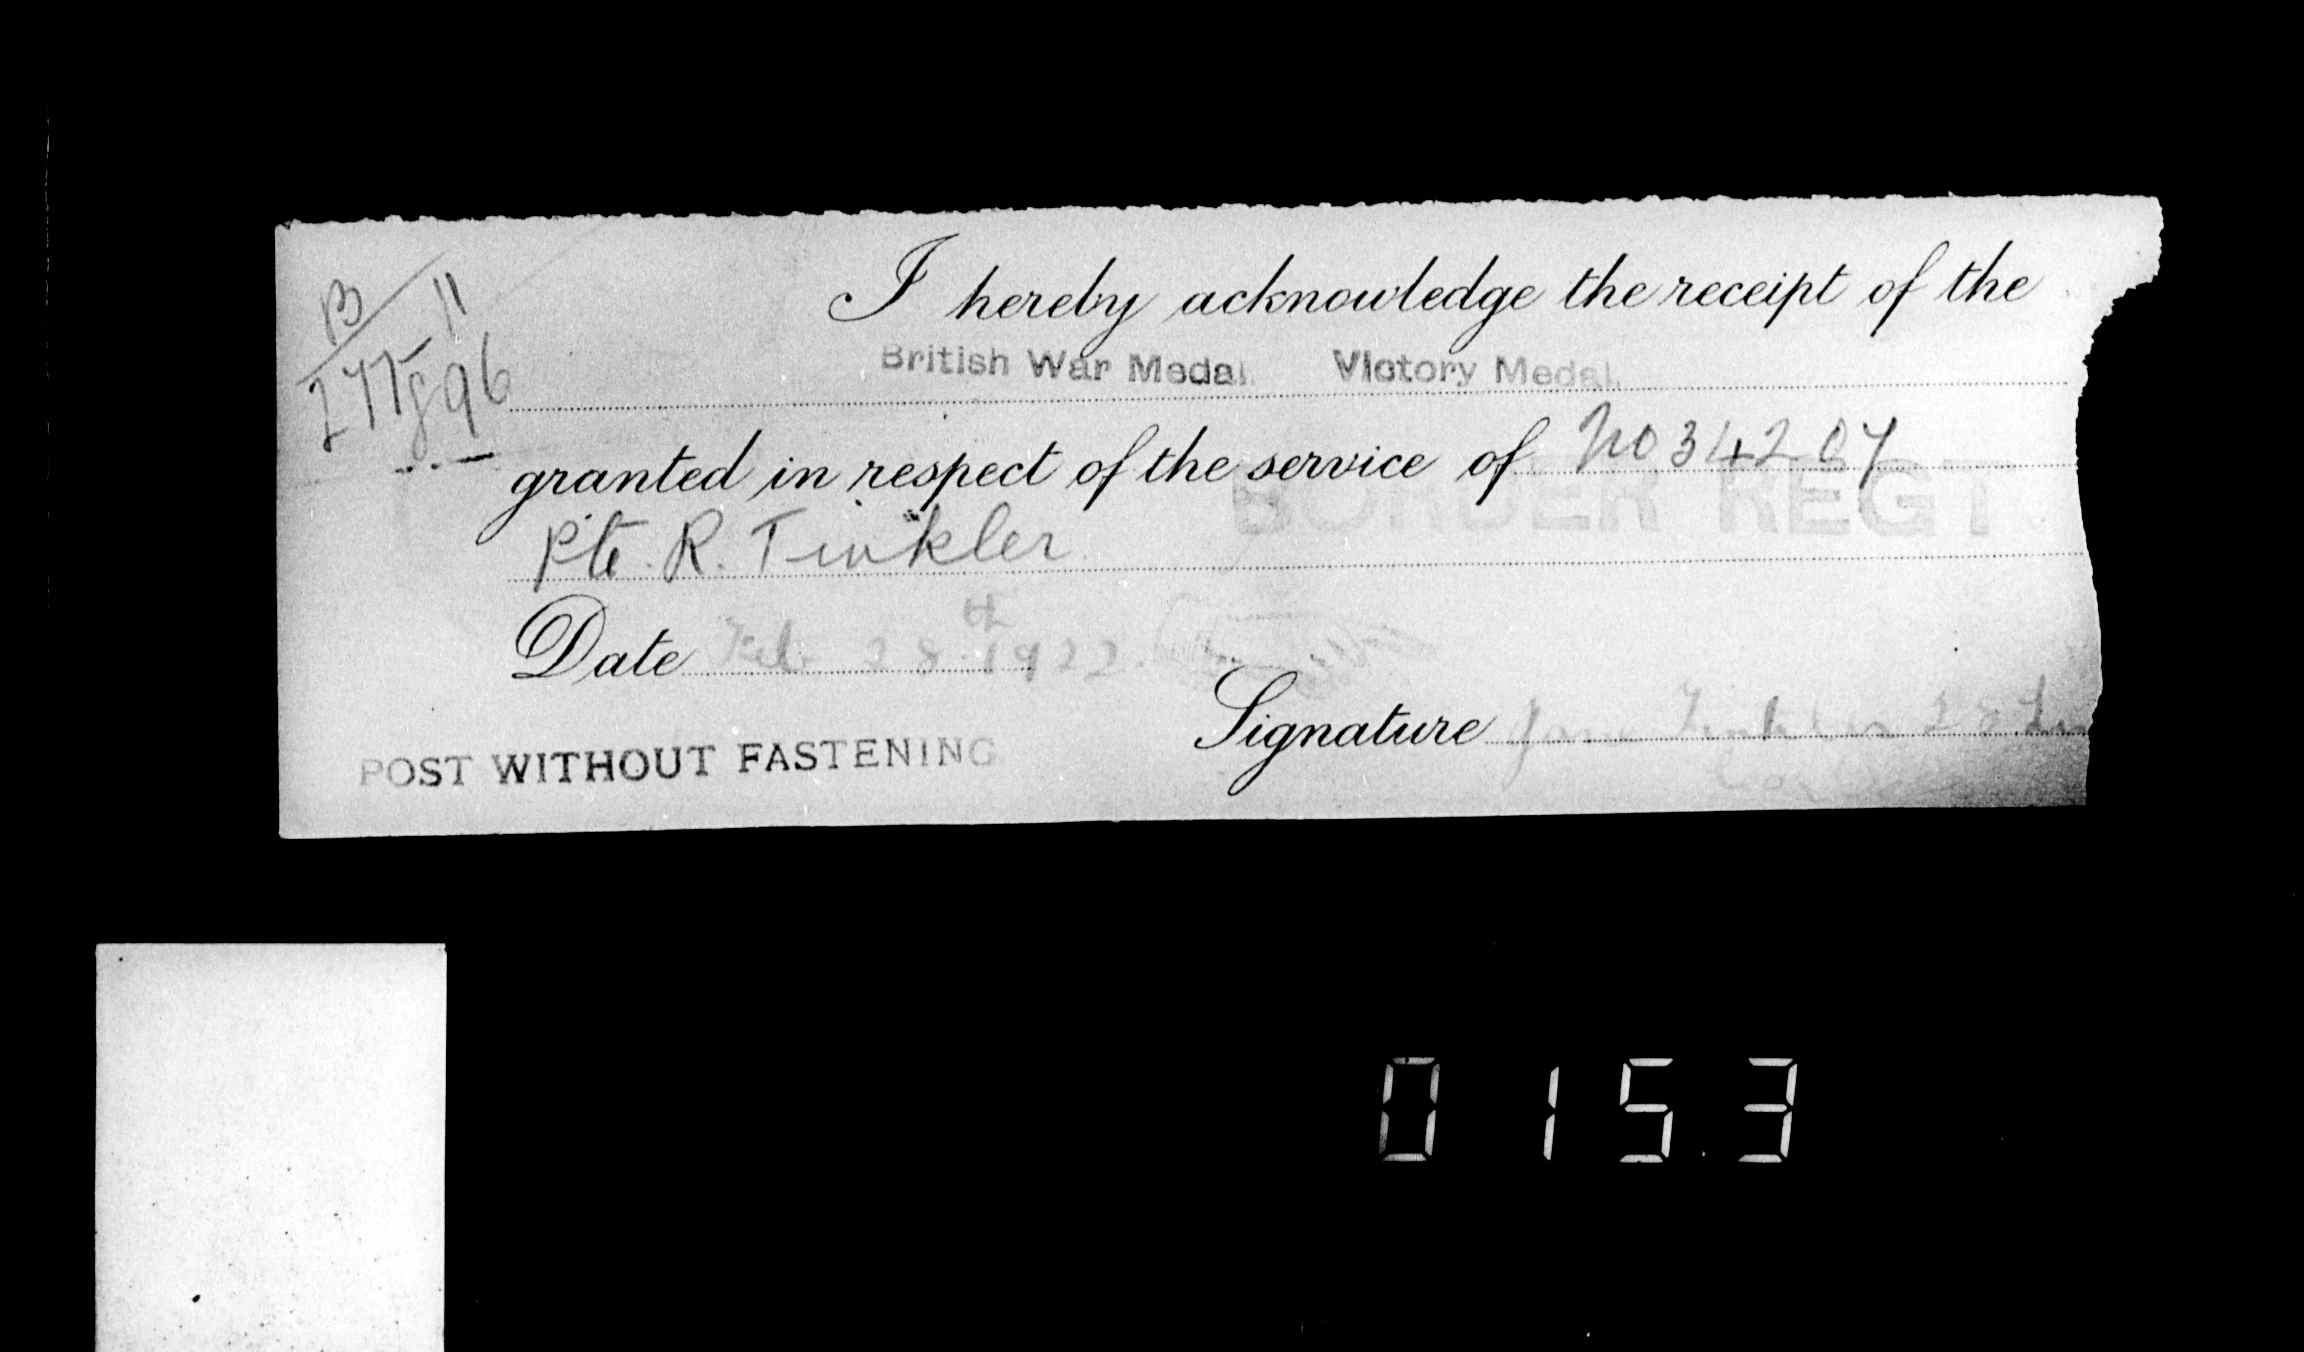 I hereby acknowledge the receipt of the
B
277-11
896
British War Medal. Victory Medal.
granted in respect of the service of No 34207
BORDER REGT.
Pte. R. Tinkler
Date Feb 28th 1922.
Signature Jane Tinkler 28
POST WITHOUT FASTENING
0153